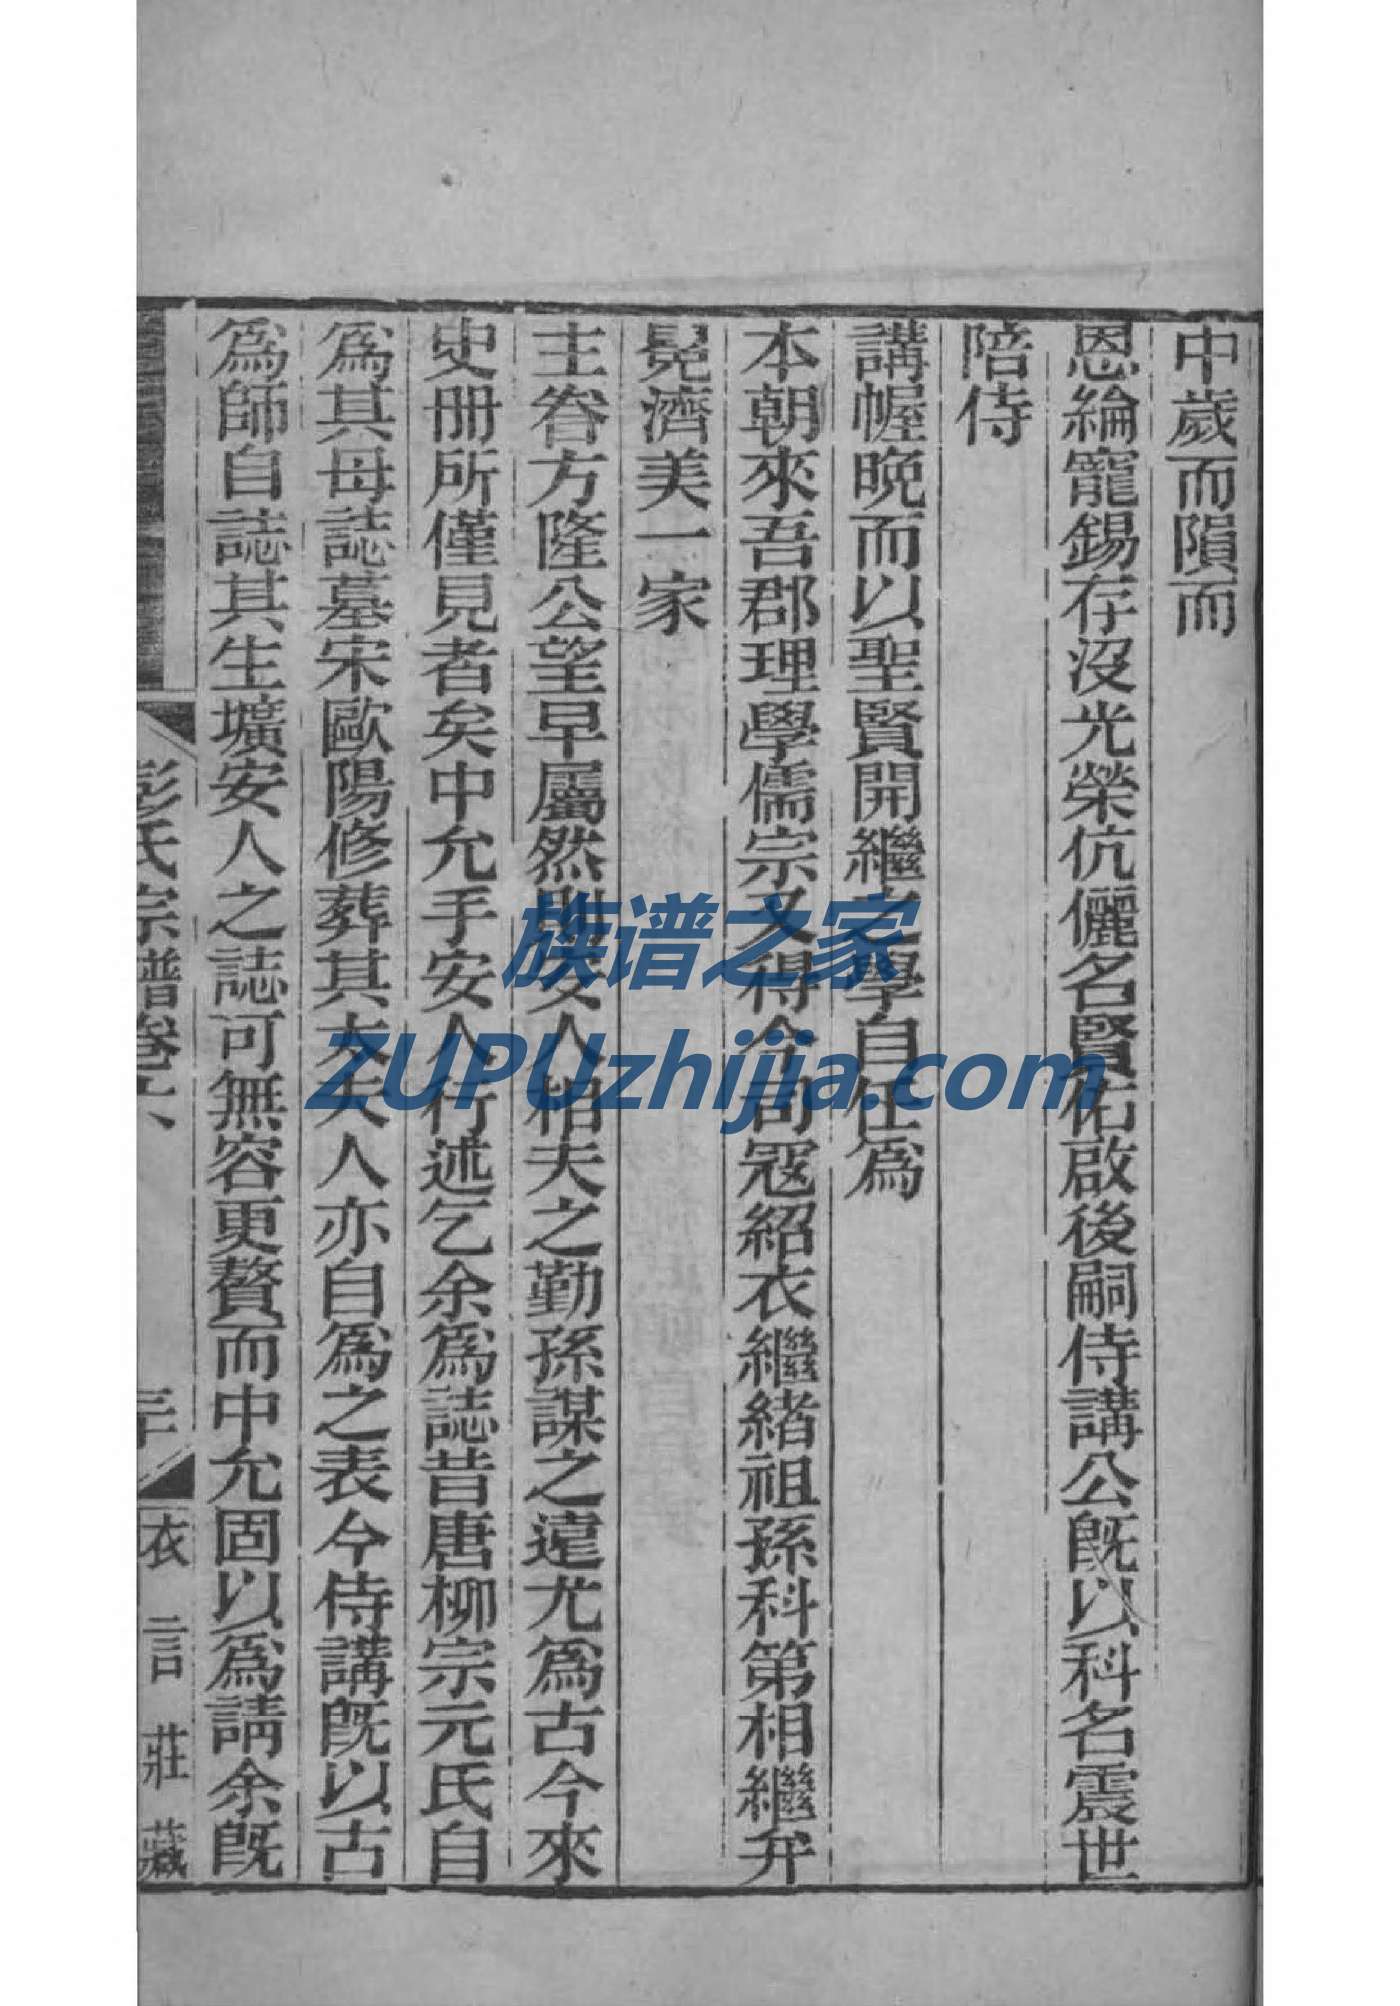 中歲而隕而
恩綸寵錫存沒光榮伉儷名賢佑啟後嗣侍講公既以科名震世
陪侍
講幄晚而以聖賢開繼之學自任爲
本朝來吾郡理學儒宗又得今司寇紹衣繼緒祖孫科第相繼弁
髦濟美一家
主眷方隆公望早屬然則安人相夫之勤孫謀之遠尤爲古今來
史册所僅見者矣中允手安人行述乞余爲誌昔唐柳宗元氏自
爲其母誌墓宋歐陽修葬其太夫人亦自爲之表今侍講既以古
爲師自誌其生壙安人之誌可無容更贅而中允固以爲請余既
彭氏宗譜卷
衣言莊藏
族谱之家
ZUPUzhijia.com